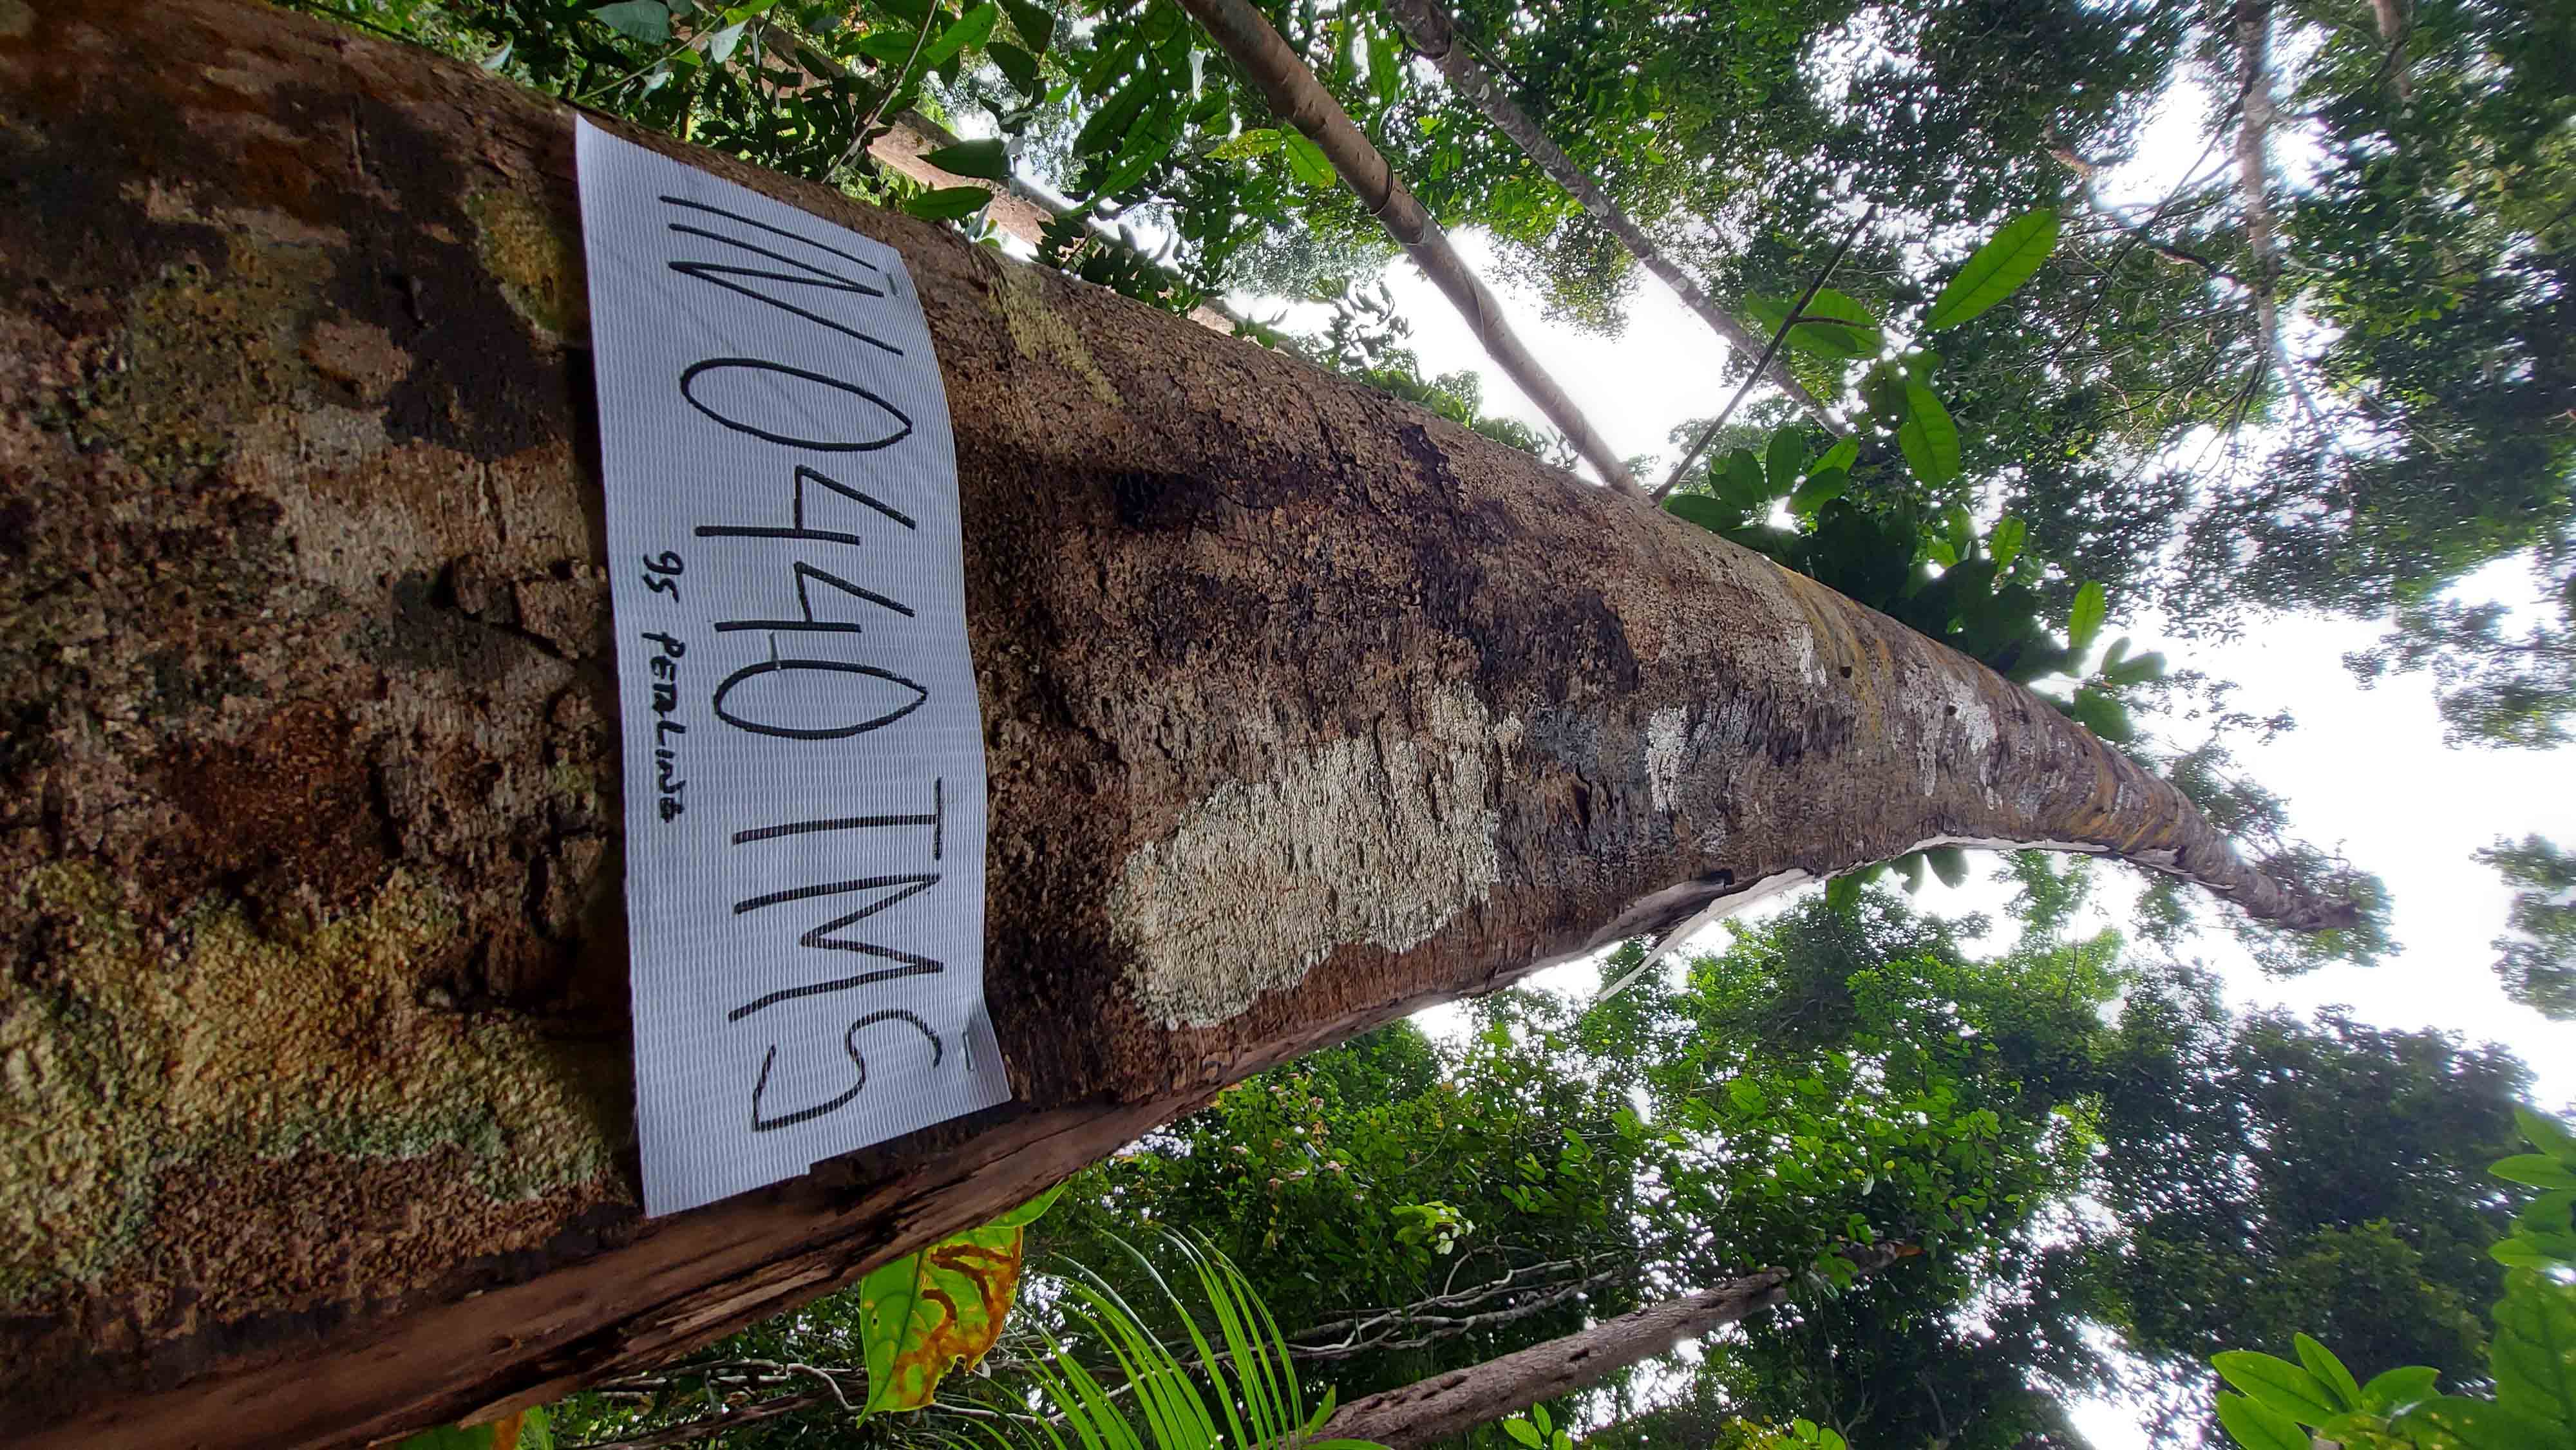 IN 0440 TMS
95 PETALING